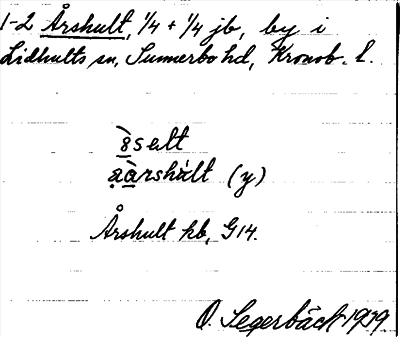 1-2 Årshult, 1/4 + 1/4 jb, by i
Lidhults sn, Sunnerbo hd, Kronob. l.
aarshùlt (y)
Årshult kb, G14.
O. Segerbäck 1939.